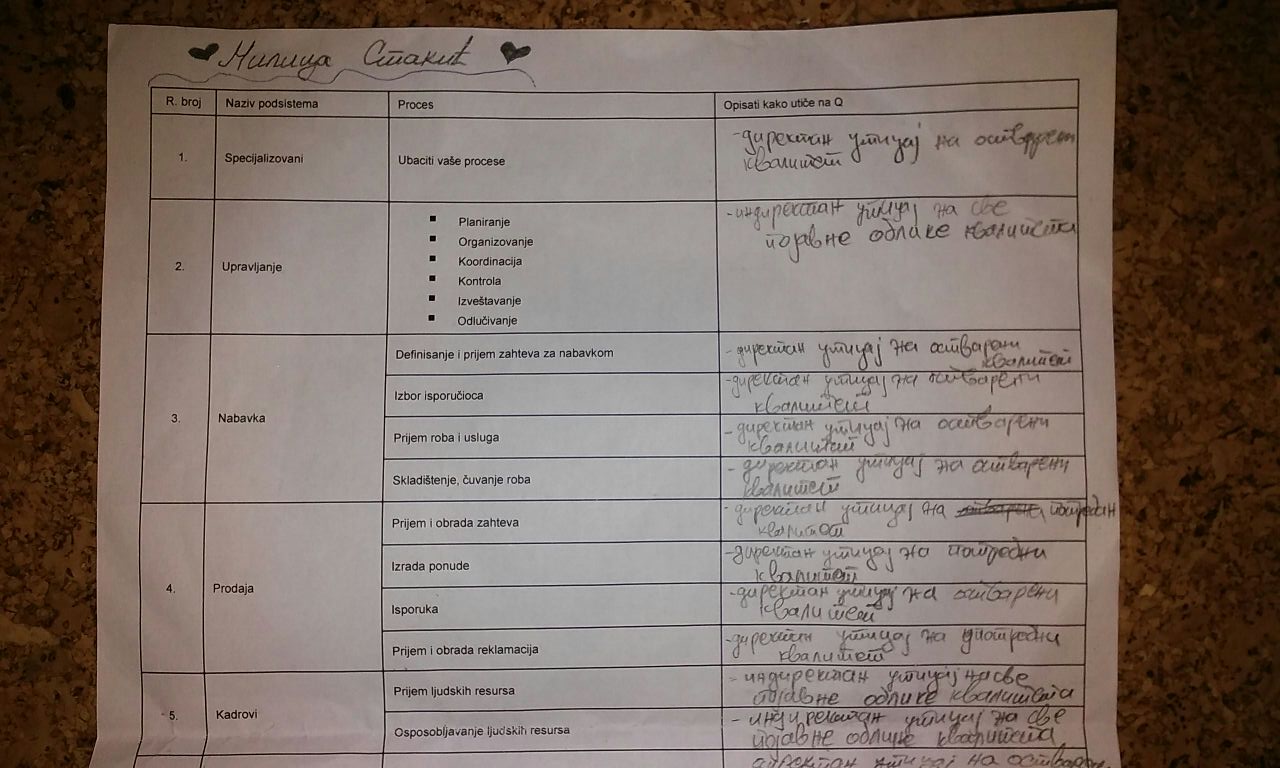 Милица Стакић
R. broj Naziv podsistema Proces Opisati kako utiče na Q
1. Specijalizovani Ubaciti vaše procese
-директан утицај на остварени
квалитет
2. Upravljanje
Planiranje
Organizovanje
Koordinacija
Kontrola
Izveštavanje
Odlučivanje
-индиректан утицај на све
појавне облике квалитета
3. Nabavka
Definisanje i prijem zahteva za nabavkom
-директан утицај на остварени
квалитет
Izbor isporučioca
-директан утицај на остварени
квалитет
Prijem roba i usluga
-директан утицај на остварени
квалитет
Skladištenje, čuvanje roba
- директан утицај на остварени
квалитет
4. Prodaja
Prijem i obrada zahteva
- директан утицај на
квалитет
Izrada ponude
-директан утицај на потребни
квалитет
Isporuka
-директан утицај на остварени
квалитет
Prijem i obrada reklamacija
-директан утицај на потребни
квалитет
5. Kadrovi
Prijem ljudskih resursa
- индиректан утицај на све
појавне облике квалитета
Osposobljavanje ljudskih resursa
- индиректан утицај на све
појавне облике квалитета
директан утицај на